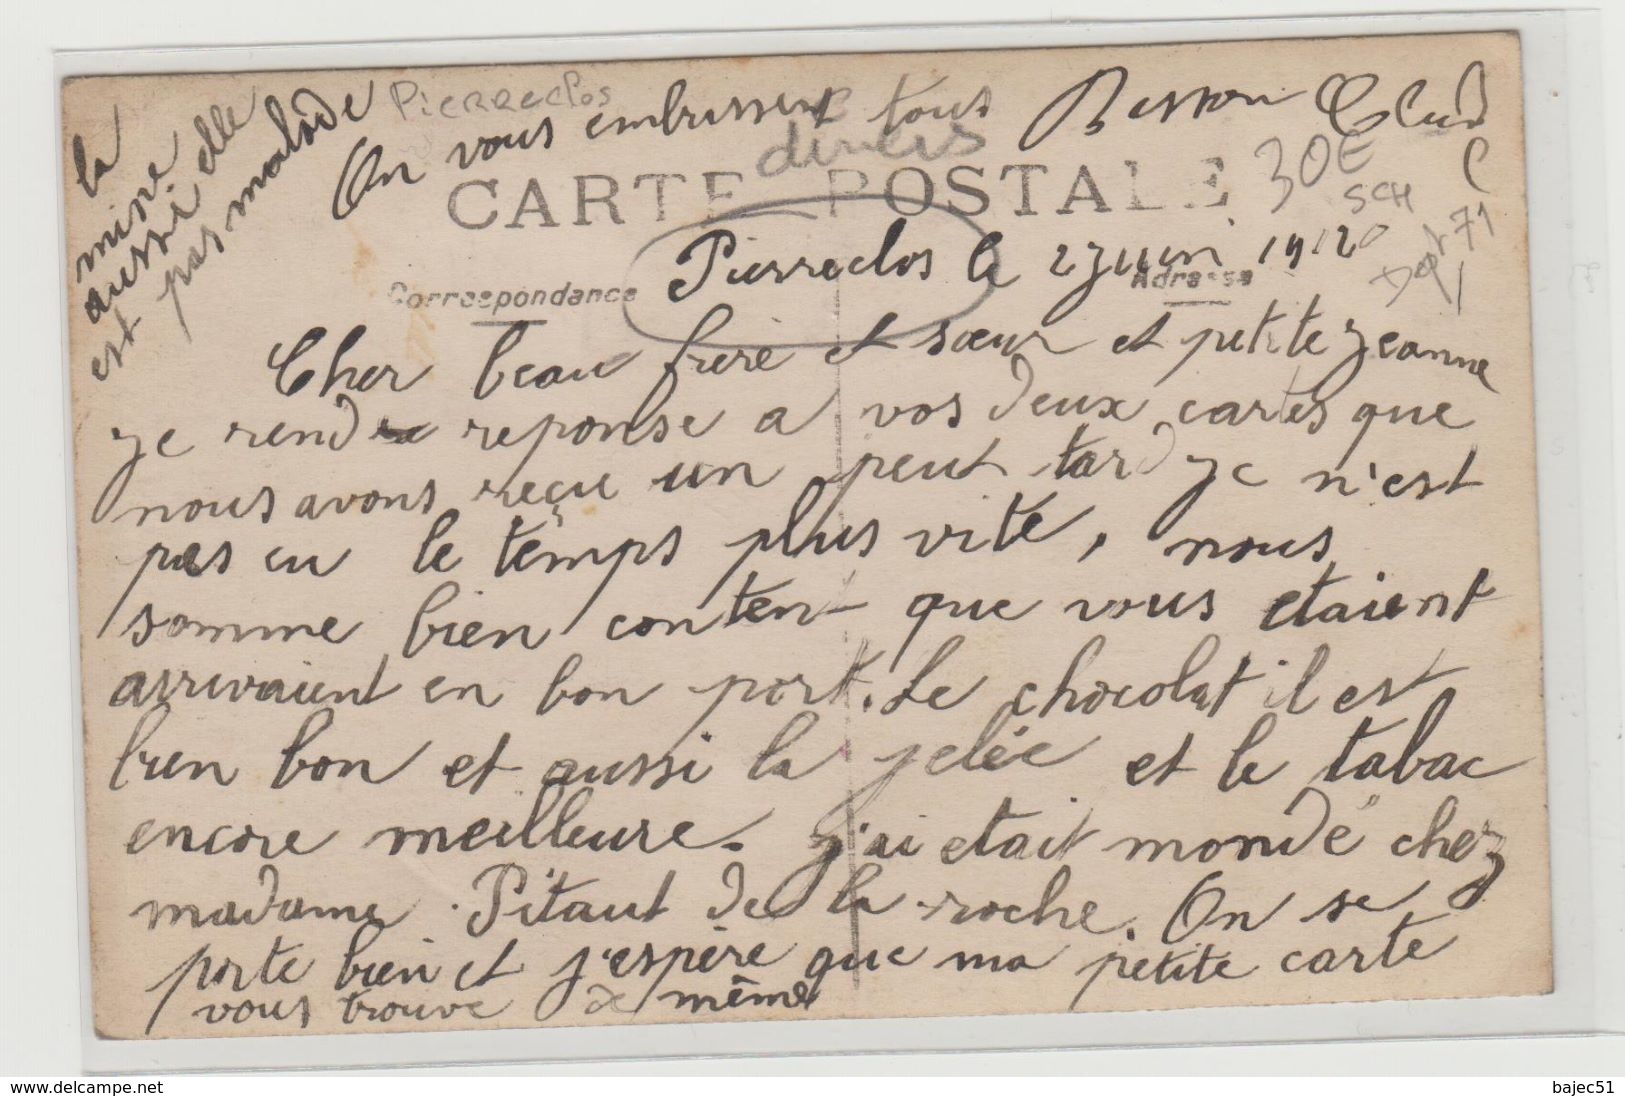 la
mine
aussi elle
est pas malade
Pierreclos
On vous embrassent tous Besson Claud
divers
CARTE POSTALE
30E
SCH
Dept 71
Correspondance
Adresse
Pierreclos le 2 juin
Cher beau frere et sœur et petite jeanne
je rend reponse a vos deux cartes que
nous avons reçu un peut tard je n'est
pas eu le temps plus vite, nous
somme bien content que vous etaient
arrivaient en bon port. Le chocolat il est
bien bon et aussi la jelée et le tabac
encore meilleure. j'ai etait mondé chez
madame Pitaut de la roche. On se
porte bien et j'espère que ma petite carte
vous trouve de même
www.delcampe.net
bajec51